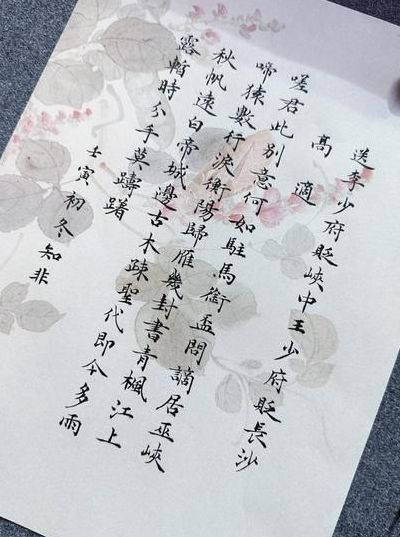 送李少府貶峽中王少府貶長沙
高適
嗟君此別意何如駐馬銜盃問謫居巫峽
啼猿數行淚衡陽歸雁幾封書青楓江上
秋帆遠白帝城邊古木疎聖代即今多雨
露暫時分手莫躊躇
壬寅初冬知非